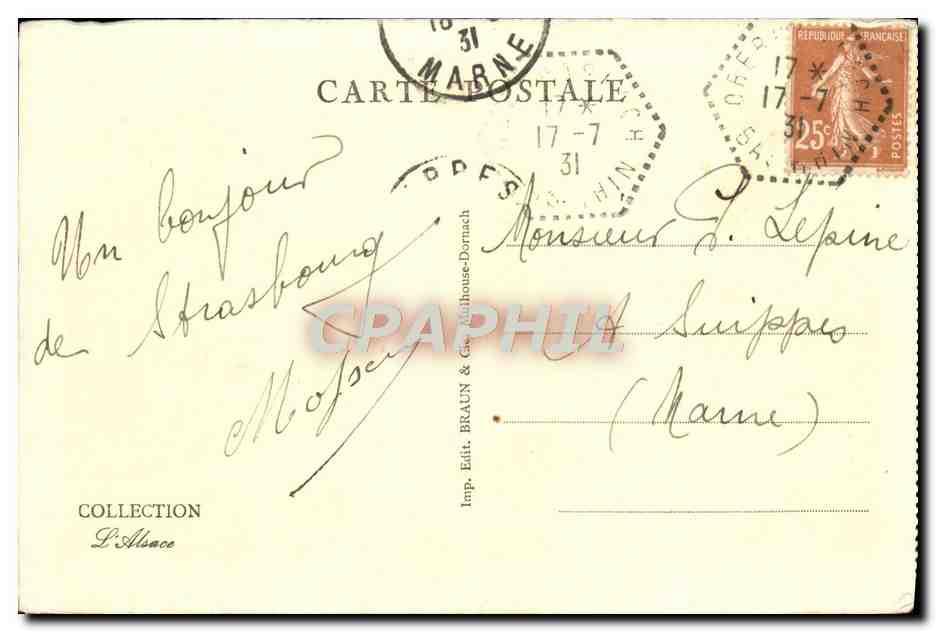 18
31
MARNE
CARTE POSTALE
17 *
17 - 7
31
RHIN
RÉPUBLIQUE FRANÇAISE
25c
POSTES
17 *
17 - 7
31
BAS RHIN
PPES
Un bonjour
de Strasbourg
Monsieur P. Lepine
A Suippes
(Marne)
CPAPHIL
Imp. Edit. BRAUN & Cie, Mulhouse-Dornach
COLLECTION
L'Alsace